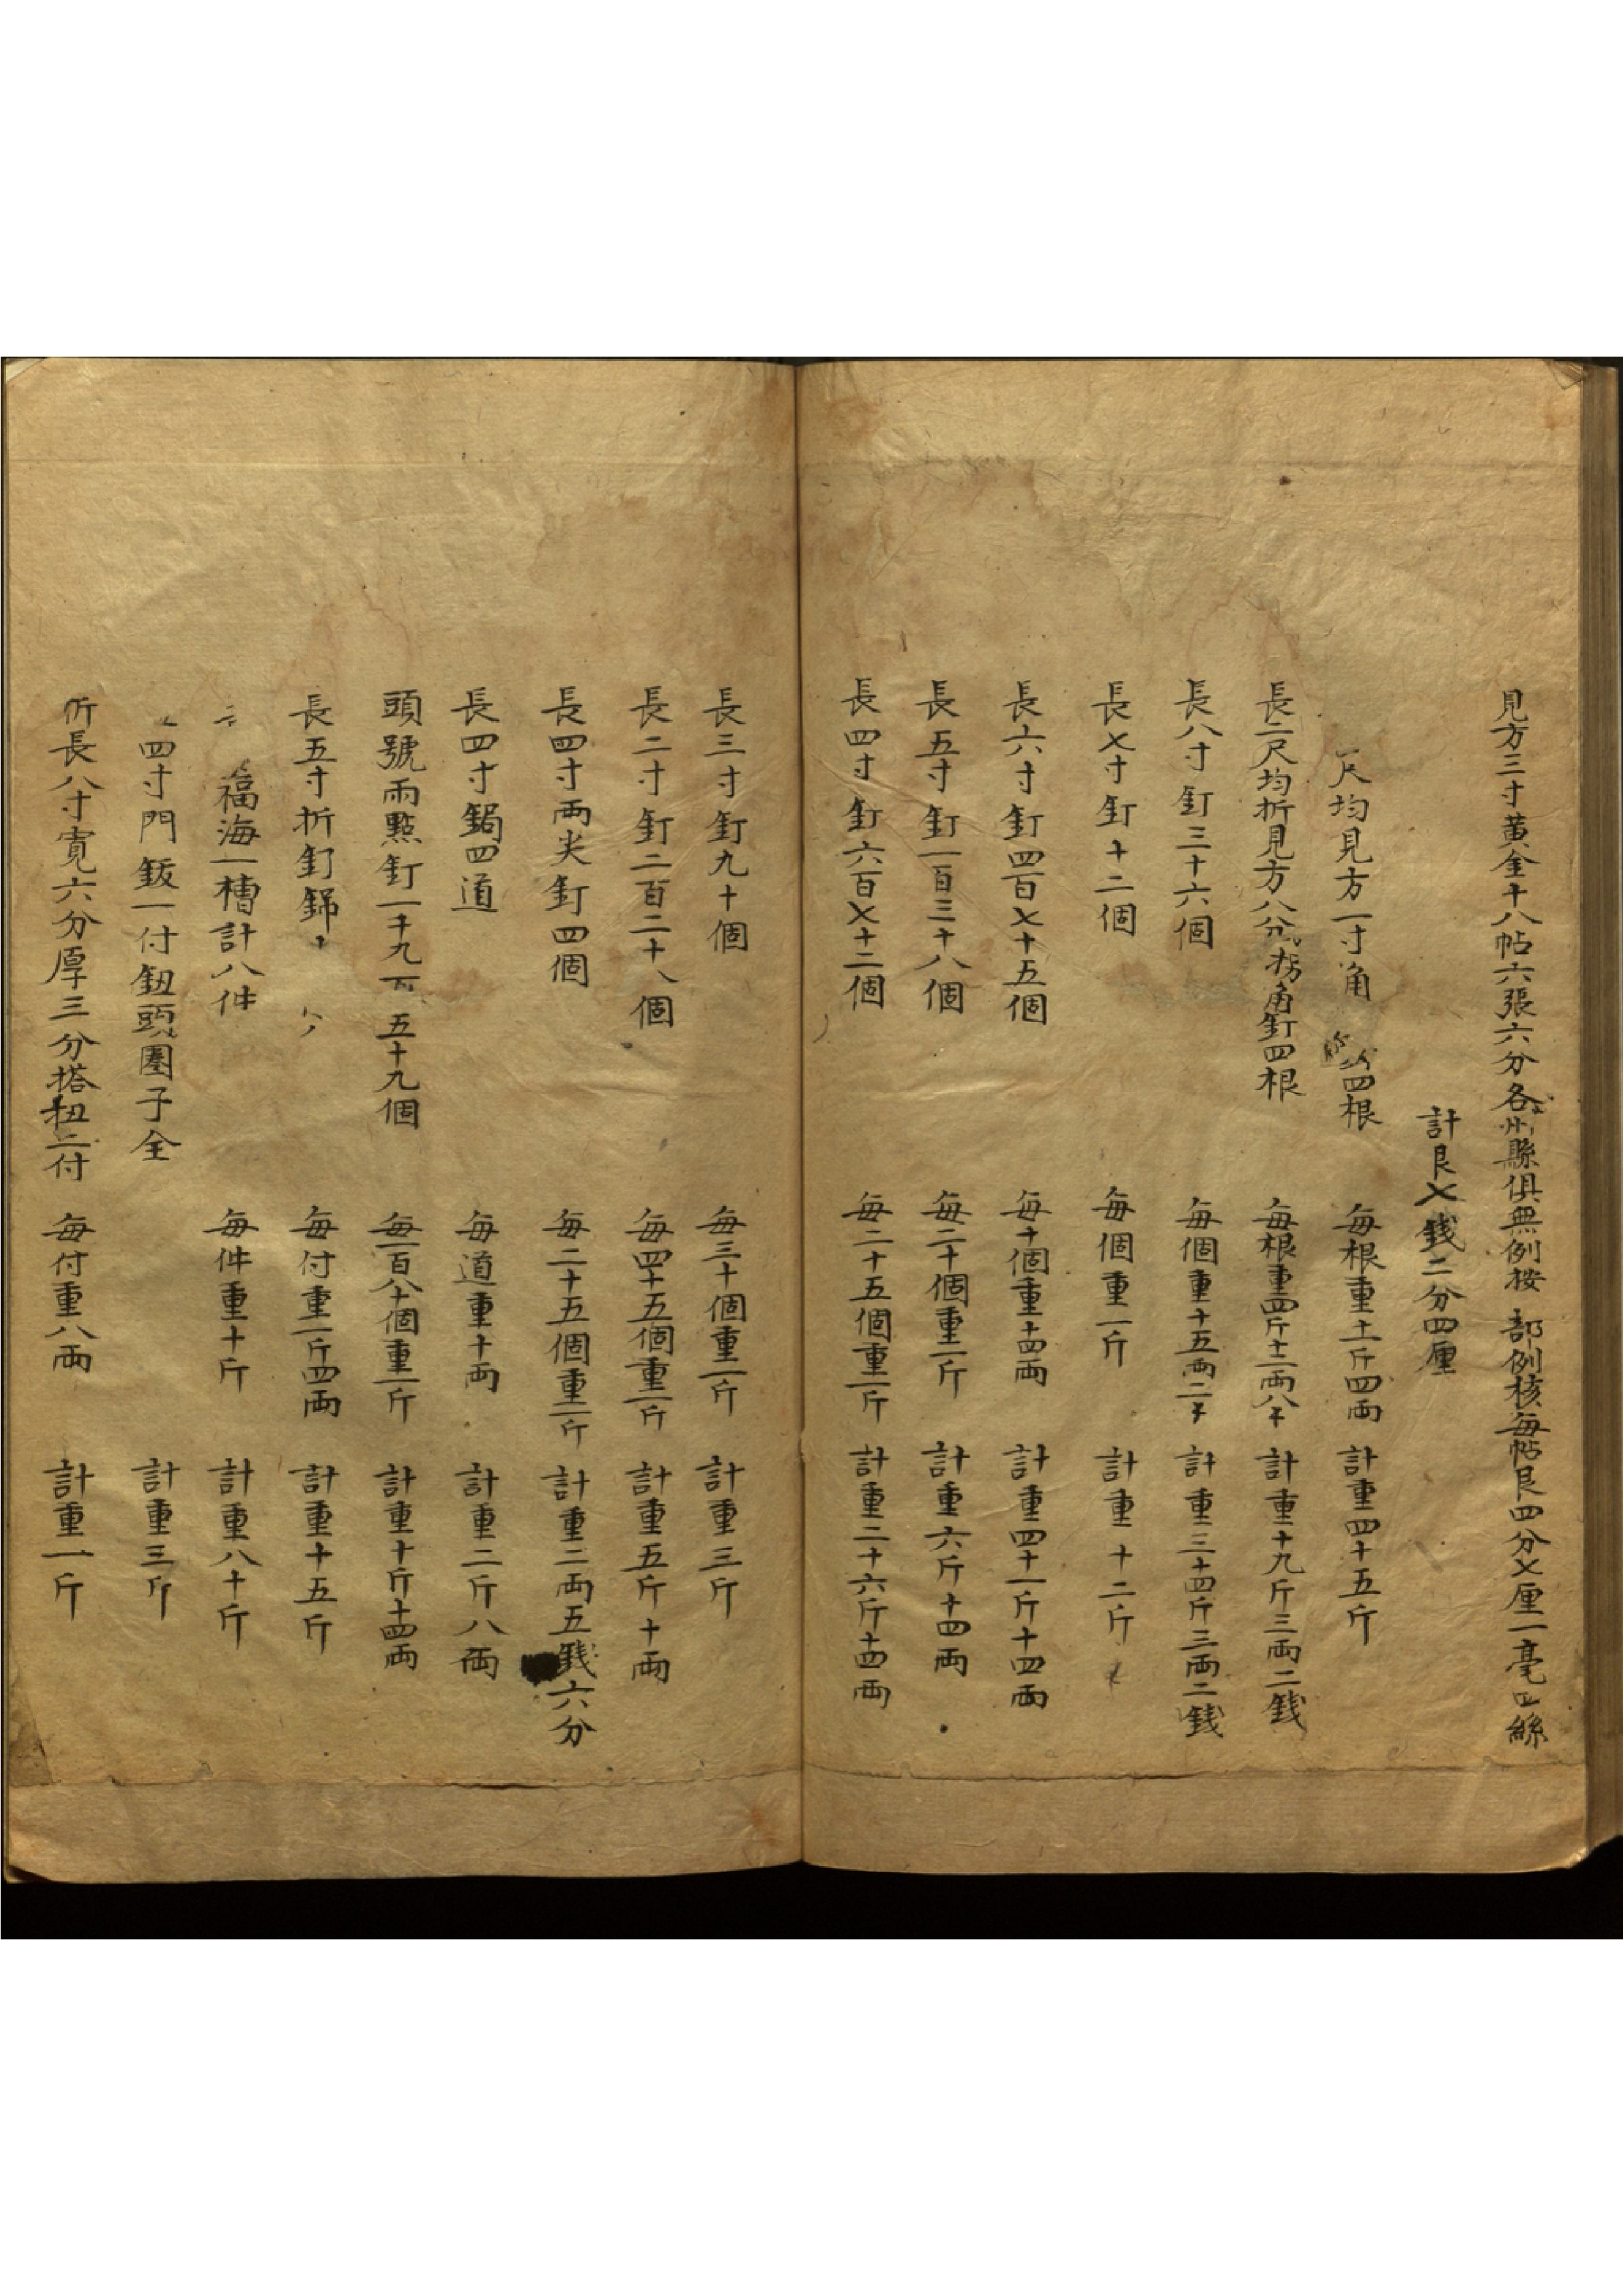 見方三寸黄金十八帖六張六分各州縣俱無例按 部例核每帖艮四分乂厘一毫四絲
計艮乂錢二分四厘
尺均見方一寸角 四根 每根重十一斤四兩 計重四十五斤
長二尺均折見方八分拐角釘四根 每根重四斤十二兩八千 計重十九斤三兩二錢
長八寸釘三十六個 每個重十五兩二千 計重三十四斤三兩二錢
長乂寸釘十二個 每個重一斤 計重十二斤
長六寸釘四百乂十五個 每十個重十四兩 計重四十一斤十四兩
長五寸釘一百三十八個 每二十個重一斤 計重六斤十四兩
長四寸釘六百乂十二個 每二十五個重一斤 計重二十六斤十四兩
長三寸釘九十個 每三十個重一斤 計重三斤
長二寸釘二百二十八個 每四十五個重一斤 計重五斤十兩
長四寸兩尖釘四個 每二十五個重一斤 計重二兩五錢六分
長四寸鋦四道 每道重十兩 計重二斤八兩
頭號雨點釘一千九百五十九個 每一百八十個重一斤 計重十斤十四兩
長五寸折釘錦 每付重一斤四兩 計重十五斤
福海一槽計八件 每件重十斤 計重八十斤
四寸門鈑一付鈕頭圈子全 計重三斤
折長八寸寬六分厚三分搭扭二付 每付重八兩 計重一斤